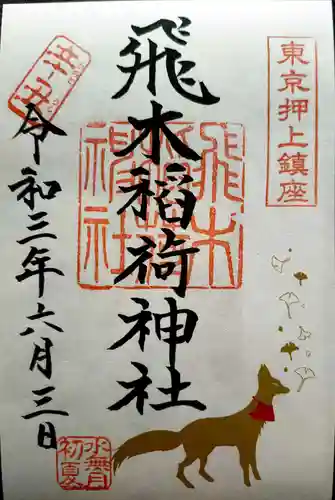 東京押上鎮座
飛木稲荷神社
飛木稲荷神社
令和三年六月三日
水無月
初夏